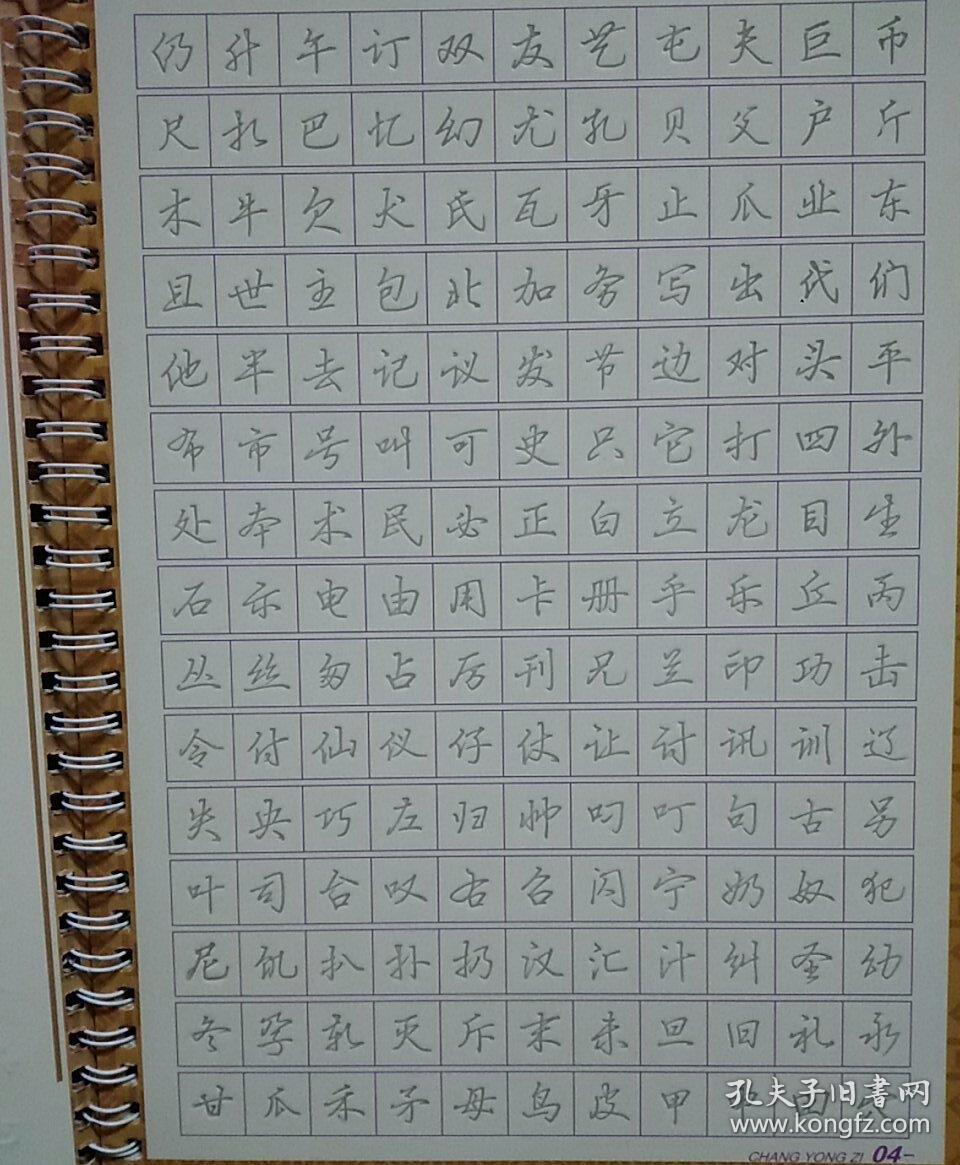 仍升午订双友艺屯夫巨币
尺扎巴忆幻尤孔贝父户斤
木牛欠犬氏瓦牙止爪业东
且世主包北加务写出代们
他半去记议发节边对头平
布市号叫可史只它打四外
处本术民必正白立龙目生
石示电由用卡册乎乐丘丙
丛丝匆占厉刊兄兰印功击
令付仙仪仔仗让讨讯训辽
失央巧左归帅叼叮句古另
叶司台叹右召闪宁奶奴犯
尼饥扒扑扔汉汇汁纠圣幼
冬孕轧灭斥末未旦旧礼永
甘瓜禾矛母鸟皮甲
孔夫子旧书网
www.kongfz.com
CHANG YONG ZI 04-